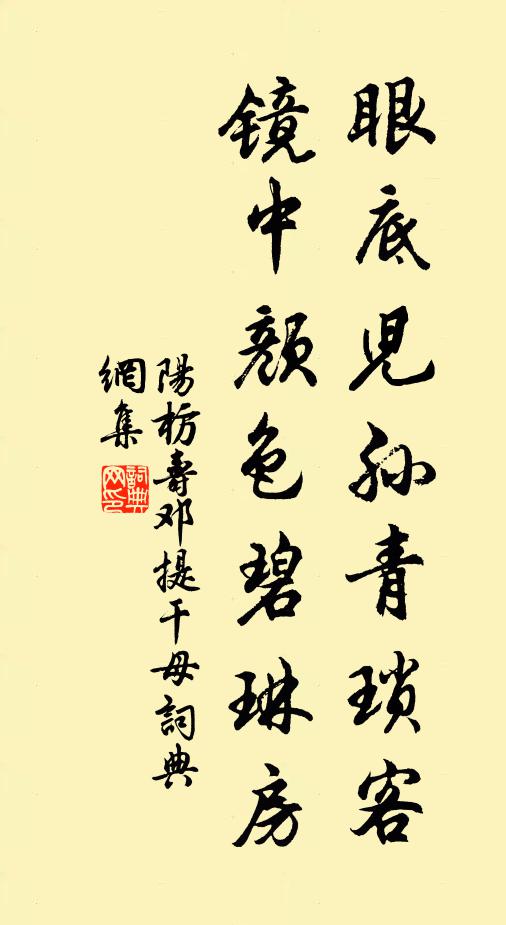 眼底児孙青瑣客
镜中顏色碧琳房
陽枋壽邓提干母詞典
網集
詞典
网印